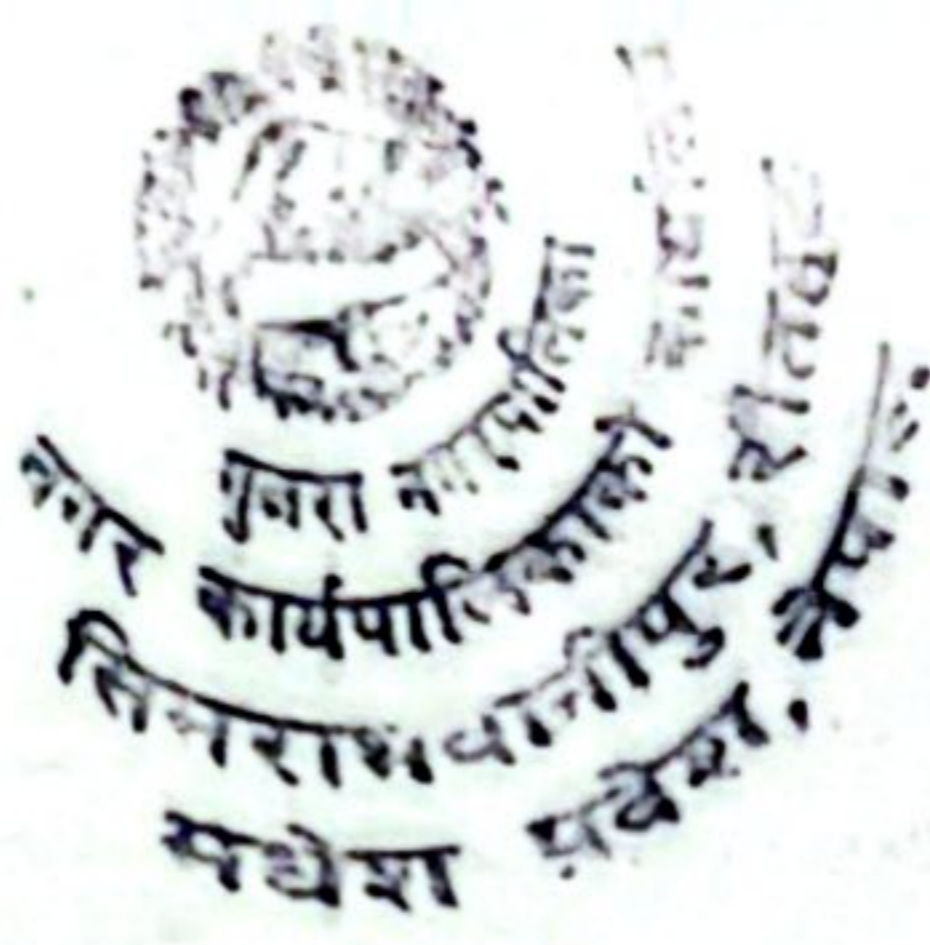 गुजरा नगरपालिका
नगर कार्यपालिकाको कार्यालय
जिनराभवानीपुर, रौतहट
मधेश प्रदेश, नेपाल